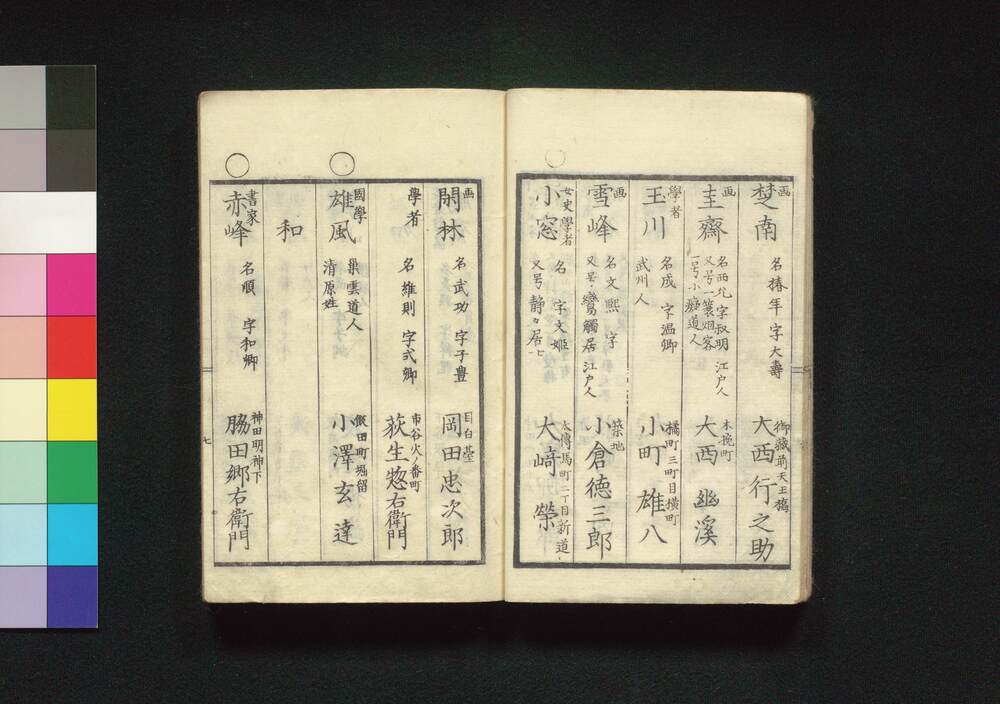 画
楚南 名椿年 字大壽 御藏前天王橋 大西行之助
画
圭齋 名西允 字叔明 江戸人
又号一簑烟客
一号小癡道人 木挽町 大西 幽溪
學者
玉川 名成 字温卿
武州人 橘町三町目横町 小町 雄八
画
雪峰 名文熙 字
又号 鸞觸居 江戸人 築地 小倉德三郎
女史 學者
小窓 名 字文姫
又号 静々居 大傳馬町二丁目新道 大﨑 榮
画
閑林 名武功 字子豊 目白臺 岡田忠次郎
學者
名維則 字式卿 市谷火ノ番町 荻生惣右衛門
國學
雄風 巣雲道人
清原姓 飯田町堀留 小澤玄達
和
書家
赤峰 名順 字和卿 神田明神下 脇田郷右衛門
七